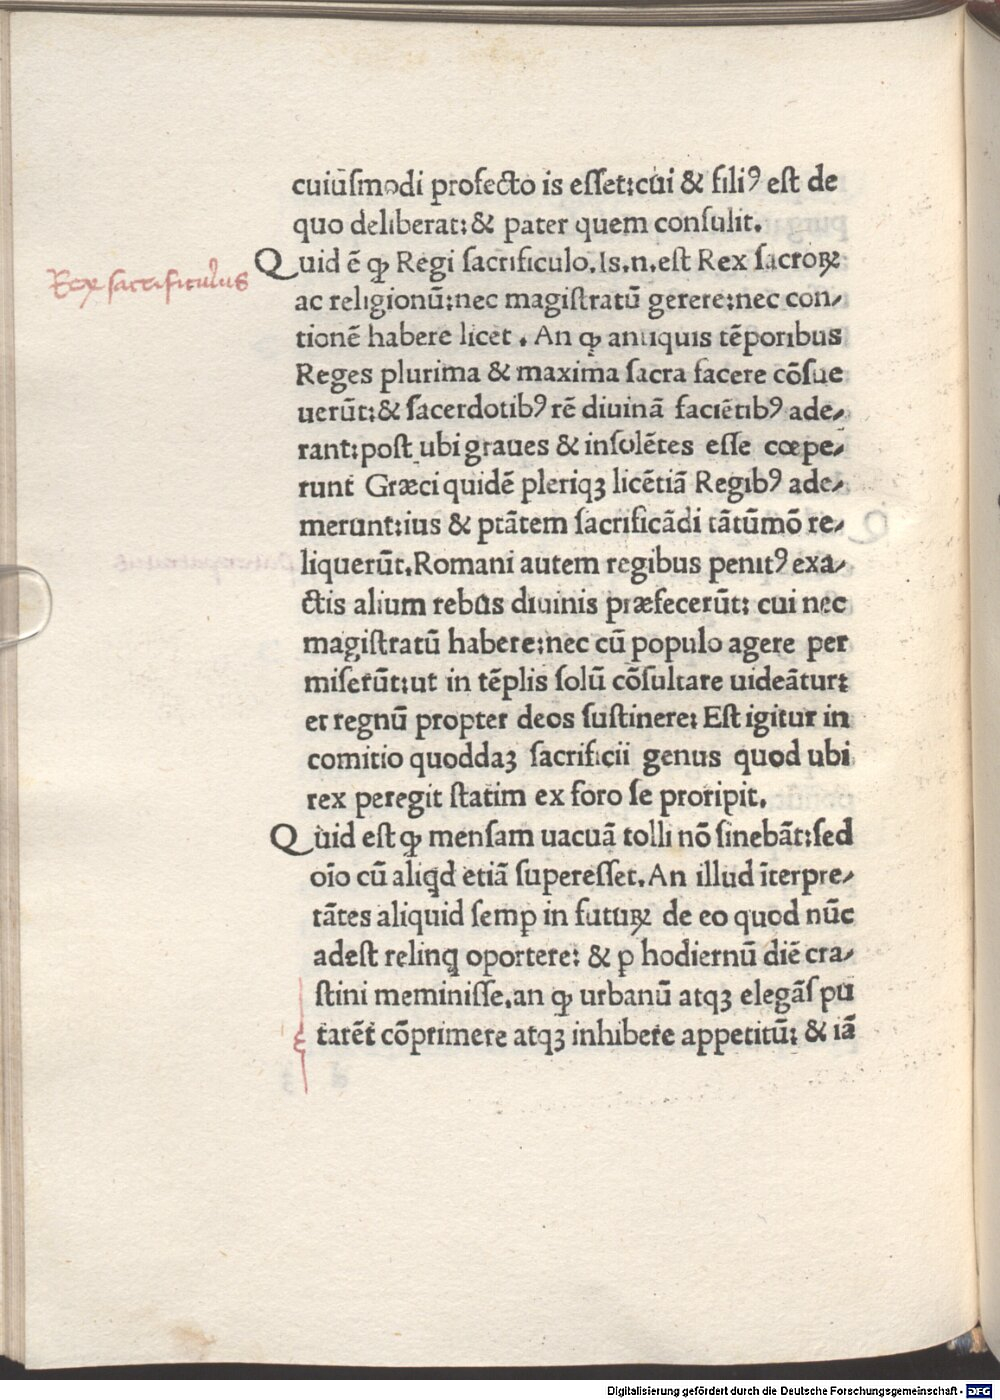 cuiuſmodi profecto is eſſet:cui & filiꝰ eſt de
quo deliberat: & pater quem conſulit.
Rex sacrificulus
Quid ē ꝙ Regi ſacrificulo.Is.n.eſt Rex ſacroꝝ
ac religionū:nec magiſtratū gerere:nec con⸗
tionē habere licet . An ꝙ antiquis tēporibus
Reges plurima & maxima ſacra facere cōſue
uerūt:& ſacerdotibꝰ rē diuinā faciētibꝰ ade⸗
rant:poſt ubi graues & inſolētes eſſe cœpe⸗
runt Græci quidē pleriqꝫ licētiā Regibꝰ ade⸗
merunt:ius & ptātem ſacrificādi tātūmō re⸗
liquerūt.Romani autem regibus penitꝰ exa⸗
ctis alium rebus diuinis præfecerūt: cui nec
magiſtratū habere:nec cū populo agere per
miſerūt:ut in tēplis ſolū cōſultare uideātur:
et regnū propter deos ſuſtinere: Eſt igitur in
comitio quoddaꝫ ſacrificii genus quod ubi
rex peregit ſtatim ex foro ſe proripit.
Quid eſt ꝙ menſam uacuā tolli nō ſinebāt:ſed
oīo cū aliqd etiā ſupereſſet.An illud īterpre⸗
tātes aliquid ſemꝑ in futuꝝ de eo quod nūc
adeſt relinꝗ oportere: & ꝑ hodiernū diē cra⸗
ſtini meminiſſe.an ꝙ urbanū atqꝫ elegāſ pu
tarēt cōprimere atqꝫ inhibere appetitū: & iā
Digitalisierung gefördert durch die Deutsche Forschungsgemeinschaft - DFG